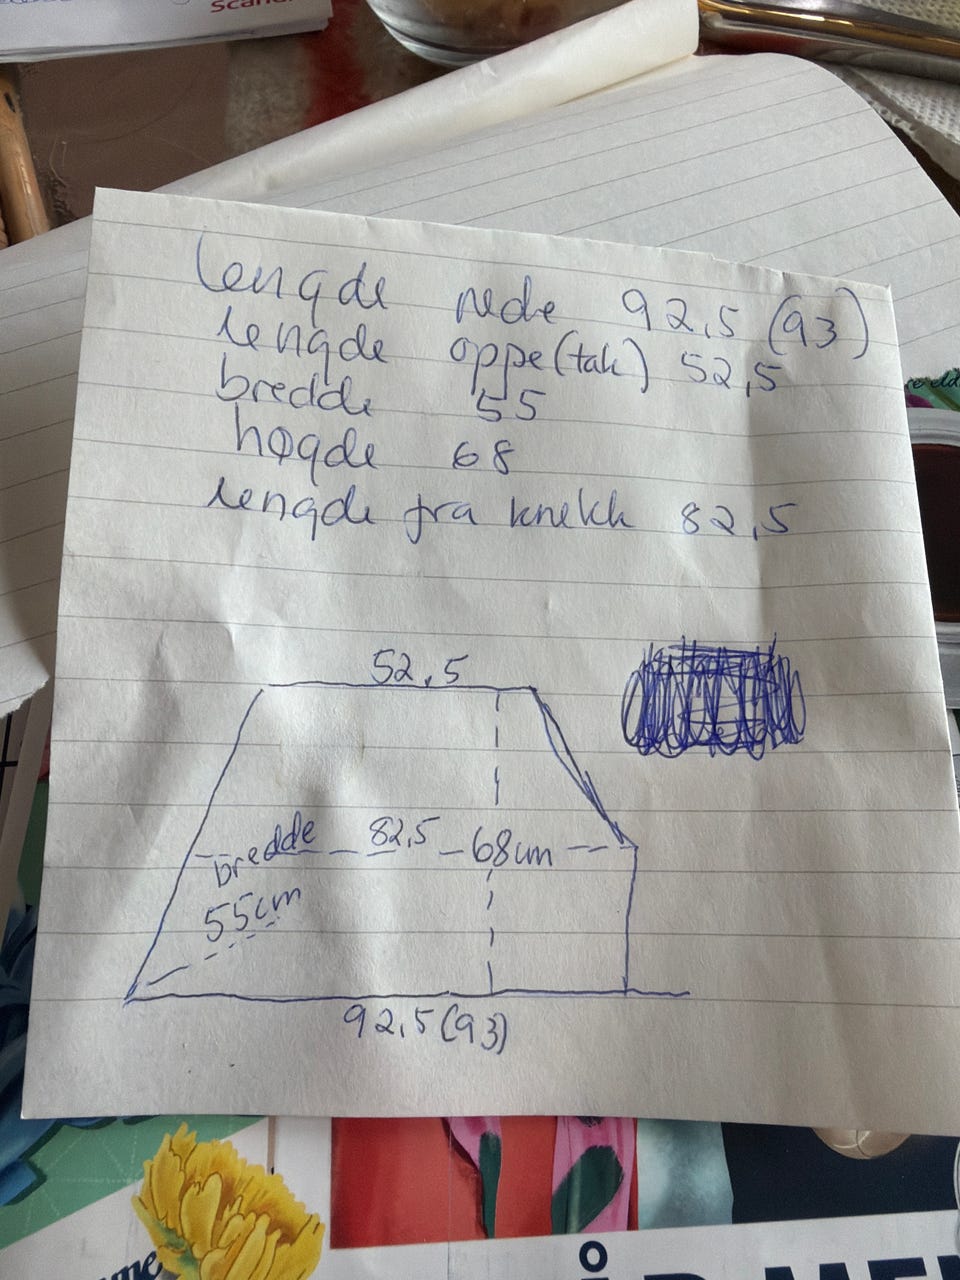 scan
lengde nede 92,5 (93)
lengde oppe (tak) 52,5
bredde 55
høgde 68
lengde fra knekk 82,5
52,5
bredde 82,5 68cm
55cm
92,5 (93)